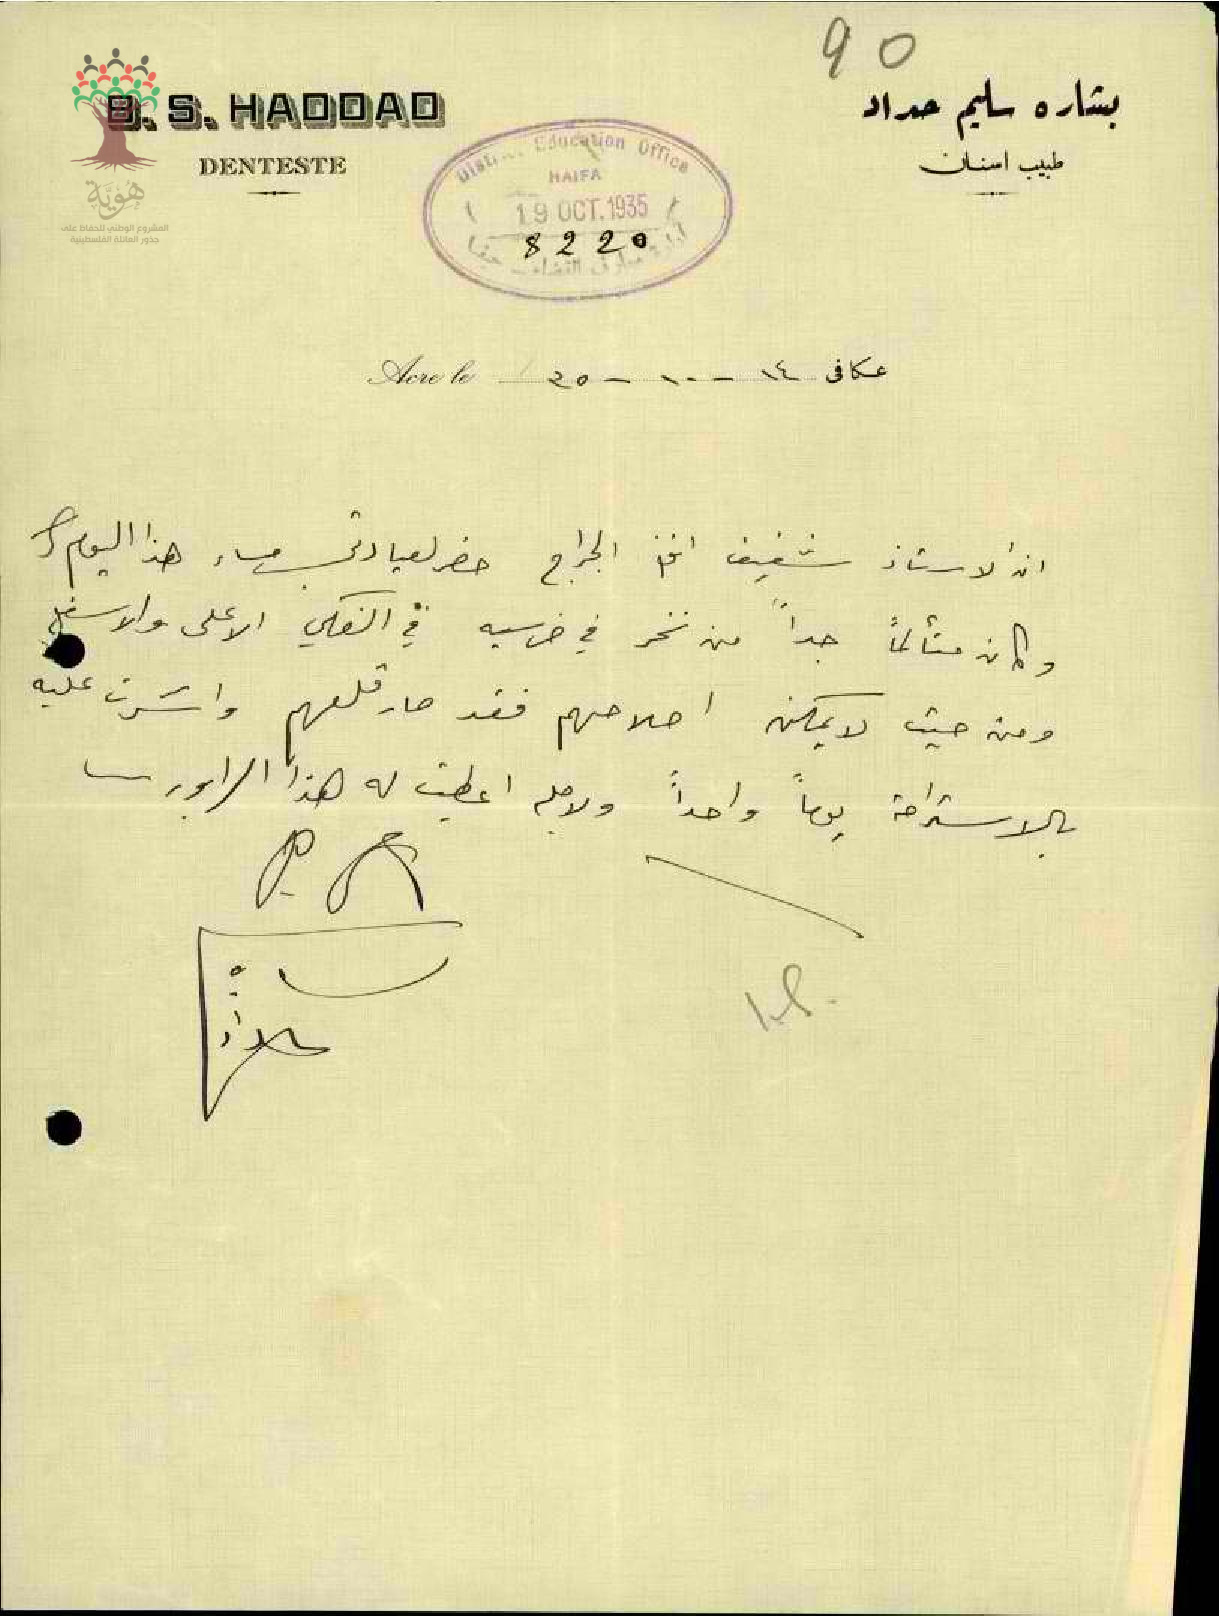 90
B. S. HADDAD
DENTESTE
بشاره سليم حداد
طبيب اسنان
هُويَّة
المشروع الوطني للحفاظ على
جذور العائلة الفلسطينية
District Education Office
HAIFA
19 OCT. 1935
8220
حيفا
Acre le ١٤ - ١٠ - ٣٥ عكا في
ان الاستاذ شفيق افندي الجراح حضر لعيادتي مساء هذا اليوم
وكان متألماً جداً من نخر في ضرسيه في الفكين الاعلى والاسفل
ومن حيث لا يمكن اصلاحهم فقد صار قلعهم واشرت عليه
بالاستراحة يوماً واحداً ولاجله اعطيت له هذا الرابور
حداد